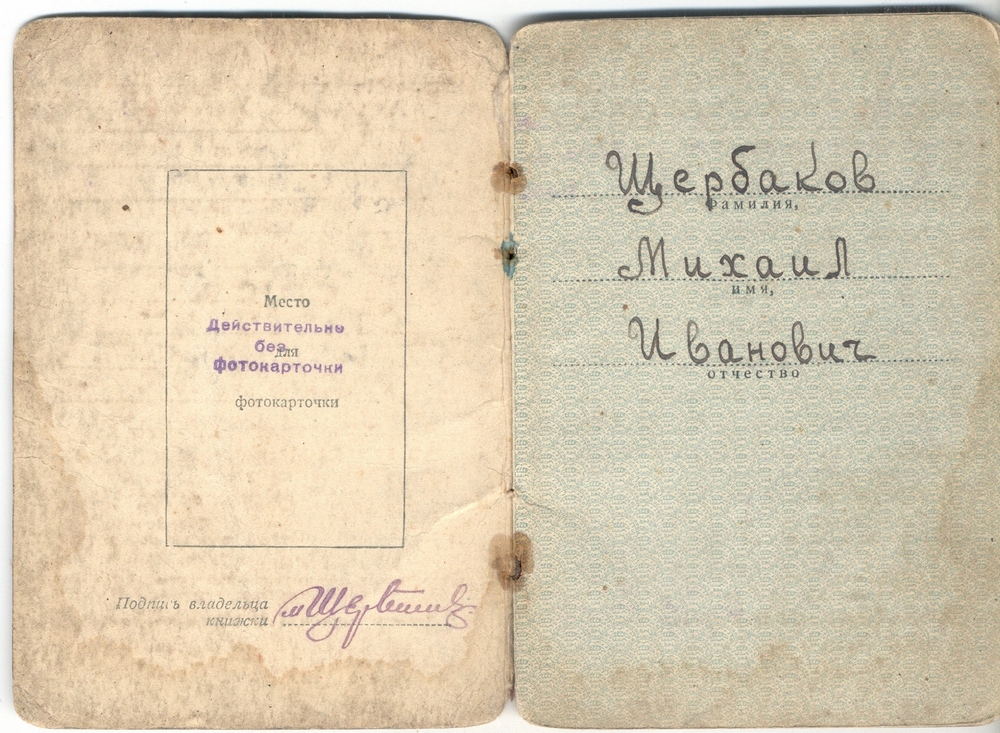 Место
Действительно
без
для
фотокарточки
фотокарточки
Подпись владельца
книжки
Щербаков
фамилия,
Михаил
имя,
Иванович
отчество